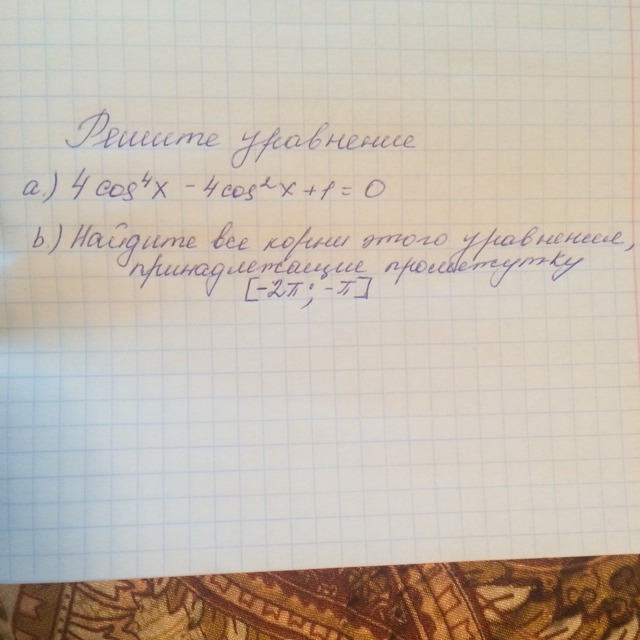 Решите уравнение
a.) 4 cos⁴x - 4cos²x + 1 = 0
b.) Найдите все корни этого уравнения,
принадлежащие промежутку
[-2π; -π]